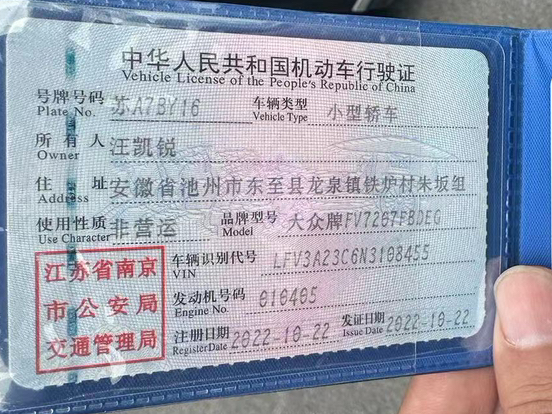 中华人民共和国机动车行驶证
Vehicle License of the People's Republic of China
号牌号码 苏A7BY16 车辆类型 小型轿车
Plate No. Vehicle Type
所有人 汪凯锐
Owner
住址 安徽省池州市东至县龙泉镇铁炉村朱坂组
Address
使用性质 非营运 品牌型号 大众牌FV7207FBDEG
Use Character Model
江苏省南京市公安局交通管理局
车辆识别代号 LFV3A23C6N3108455
VIN
发动机号码 010405
Engine No.
注册日期 2022-10-22 发证日期 2022-10-22
Register Date Issue Date